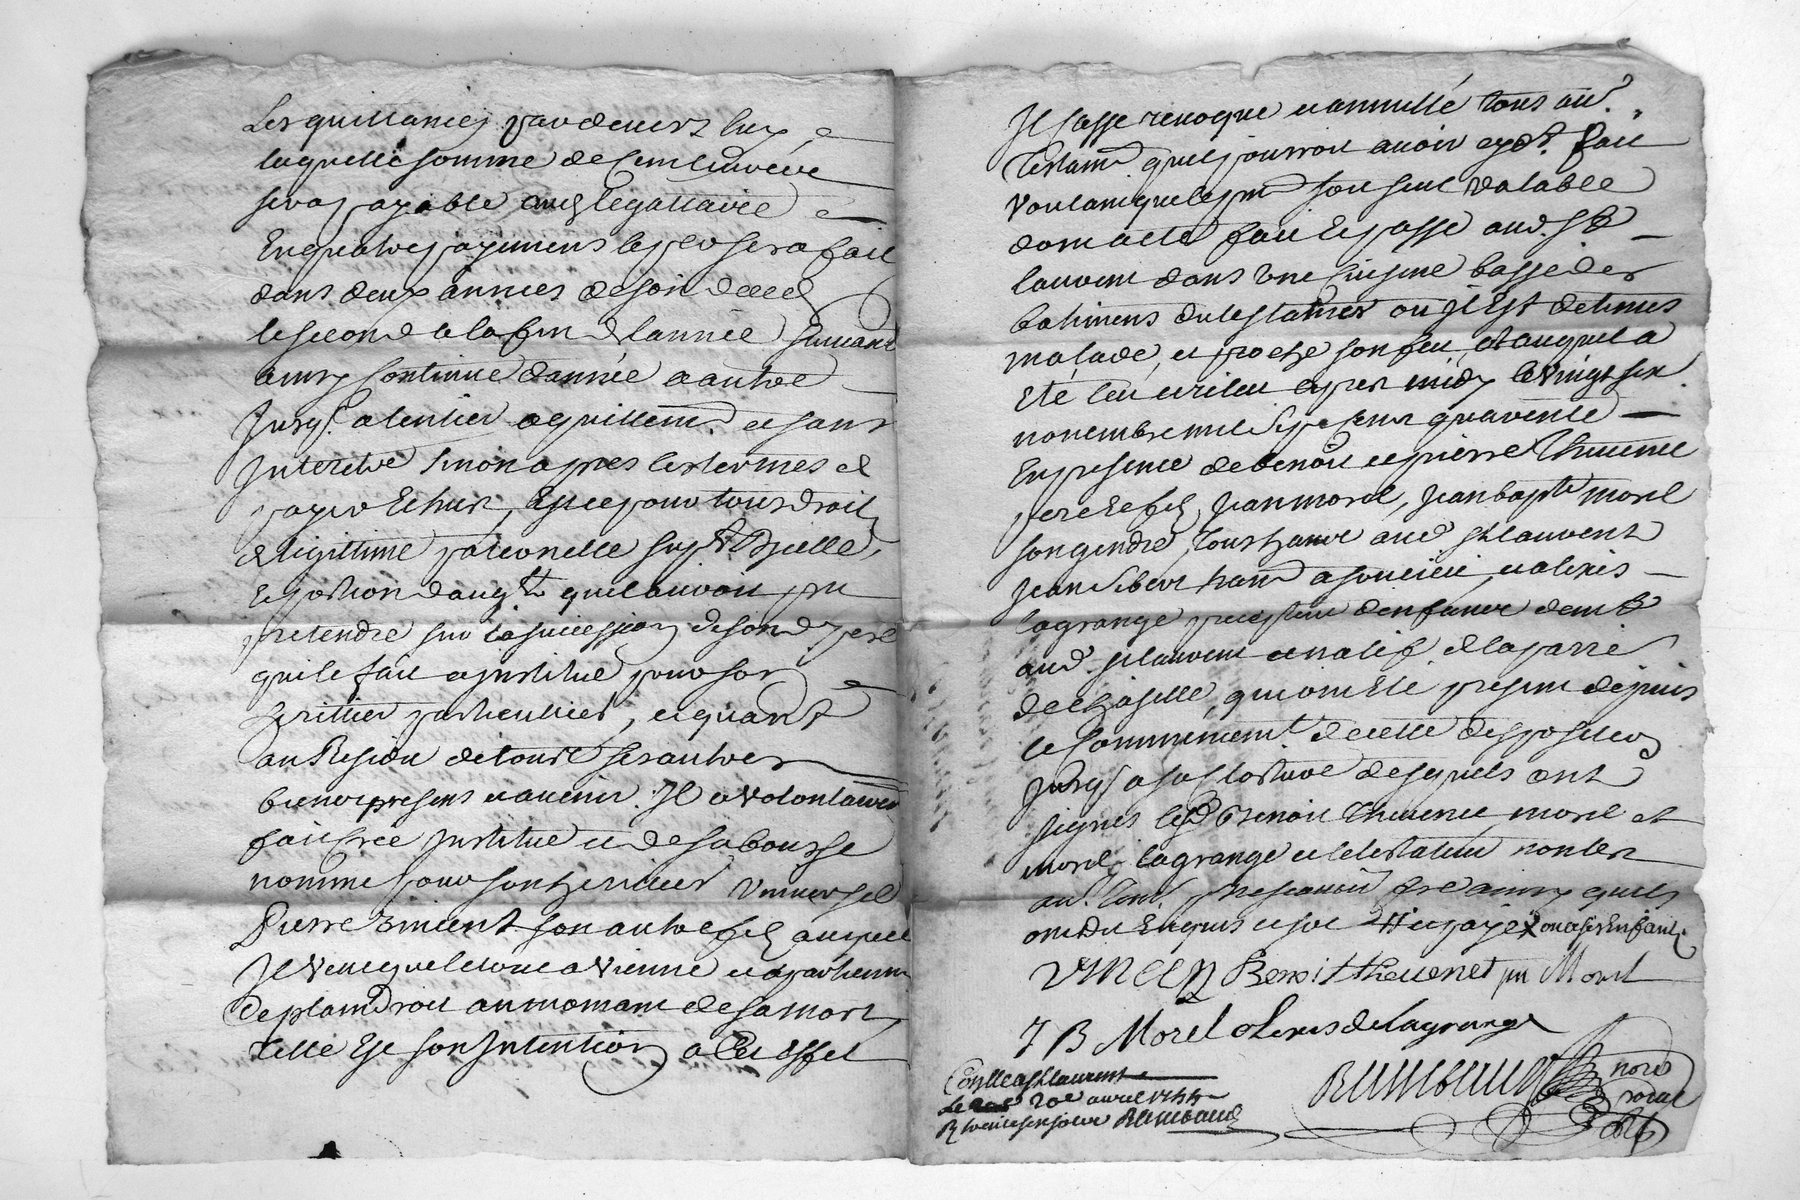 Les quittances par devers luy
laquelle somme de cent livres
sera payable aud legattaire
En quatre payemens le per sera fait
dans deux années de son deced
le second a la fin de lannée suivant
ainsy continue dannée a autre
Jusq. a lentier aquittem. et sans
Interetre sinon apres les termes de
payer Echus, Et ce pour tous droit
de legittime paternelle supt. Dicelle,
Et portion daugt qu'il auroit pu
pretendre sur la succession de son d. pere
qui le fait et institue pour son
heritier particullier, et quant
au Residu de tous ses autres
biens presens et avenir. Il a volontairem
fait cree institue et de sa bouche
nomme pour son heritier universel
Pierre Vincent son autre fils auquel
Il veut que le tout avienne et apartienne
de plain Droit au momant de sa mort
telle Est son Intention a Cet Effet
Il casse revoque et annulle tous au.
testam. quil pourroit avoir cyd. fait
voulant que le pnt soit seul valable
dont acte fait Et passé aud. St
laurent dans une cuisine basse des
batimens du testateur ou il Est detenus
malade, et proche son feu, Et auquel a
Eté leu et releu apres midy le vingt six
novembre mil sept cent quarente
En presence de benoit et pierre Thevenet
pere Et fils, Jean morel, Jean bapte morel
son gendre, tous habt aud St laurent
Jean Sibert habt a soucieu, et alexis
lagrange precepteur denfance demt
aud. St laurent et natif de la parre
de chaselle, qui ont Eté present depuis
le commencement de cette disposition
Jusq. a sa closture desquels ont
signés led Benoit Thevenet, morel et
morel, lagrange et le testateur non les
au. tem. pr ne scavoir fre ainsy quils
ont dit Enquis et som et paye ou a ses Enfants
VINCEN Benoit thevenet jn Morel
J B Morel alexis de lagrange
RIMBAUD nore
royal
Conlle a St laurent
Le 20e avril 1744
R trente six sols RIMBAUD